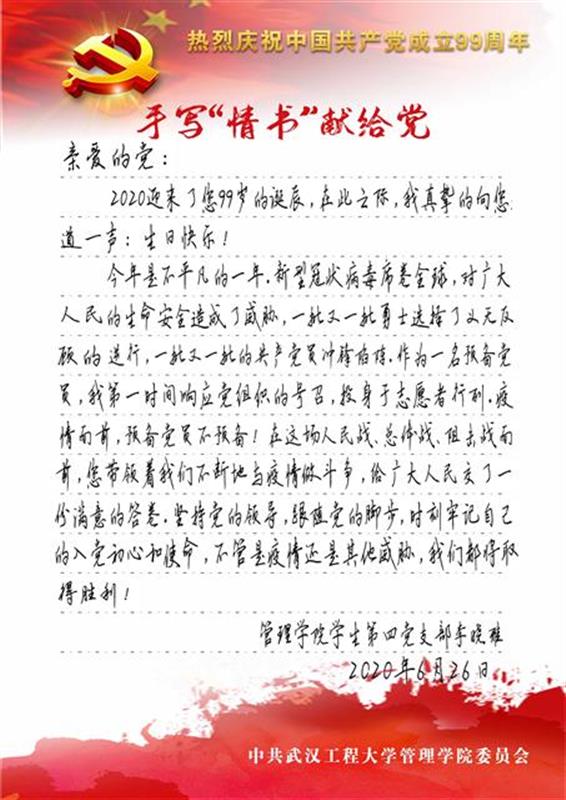 热烈庆祝中国共产党成立99周年
手写“情书”献给党
亲爱的党：
2020迎来了您99岁的诞辰，在此之际，我真挚的向您
道一声：生日快乐！
今年是不平凡的一年，新型冠状病毒席卷全球，对广大
人民的生命安全造成了威胁，一批又一批勇士选择了义无反
顾的逆行，一批又一批的共产党员冲锋陷阵。作为一名预备党
员，我第一时间响应党组织的号召，投身于志愿者行列，疫
情面前，预备党员不预备！在这场人民战、总体战、阻击战面
前，您带领着我们不断地与疫情做斗争，给广大人民交了一
份满意的答卷。坚持党的领导，跟随党的脚步，时刻牢记自己
的入党初心和使命，不管是疫情还是其他威胁，我们都将取
得胜利！
管理学院学生第四党支部李晓雅
2020年6月26日
中共武汉工程大学管理学院委员会